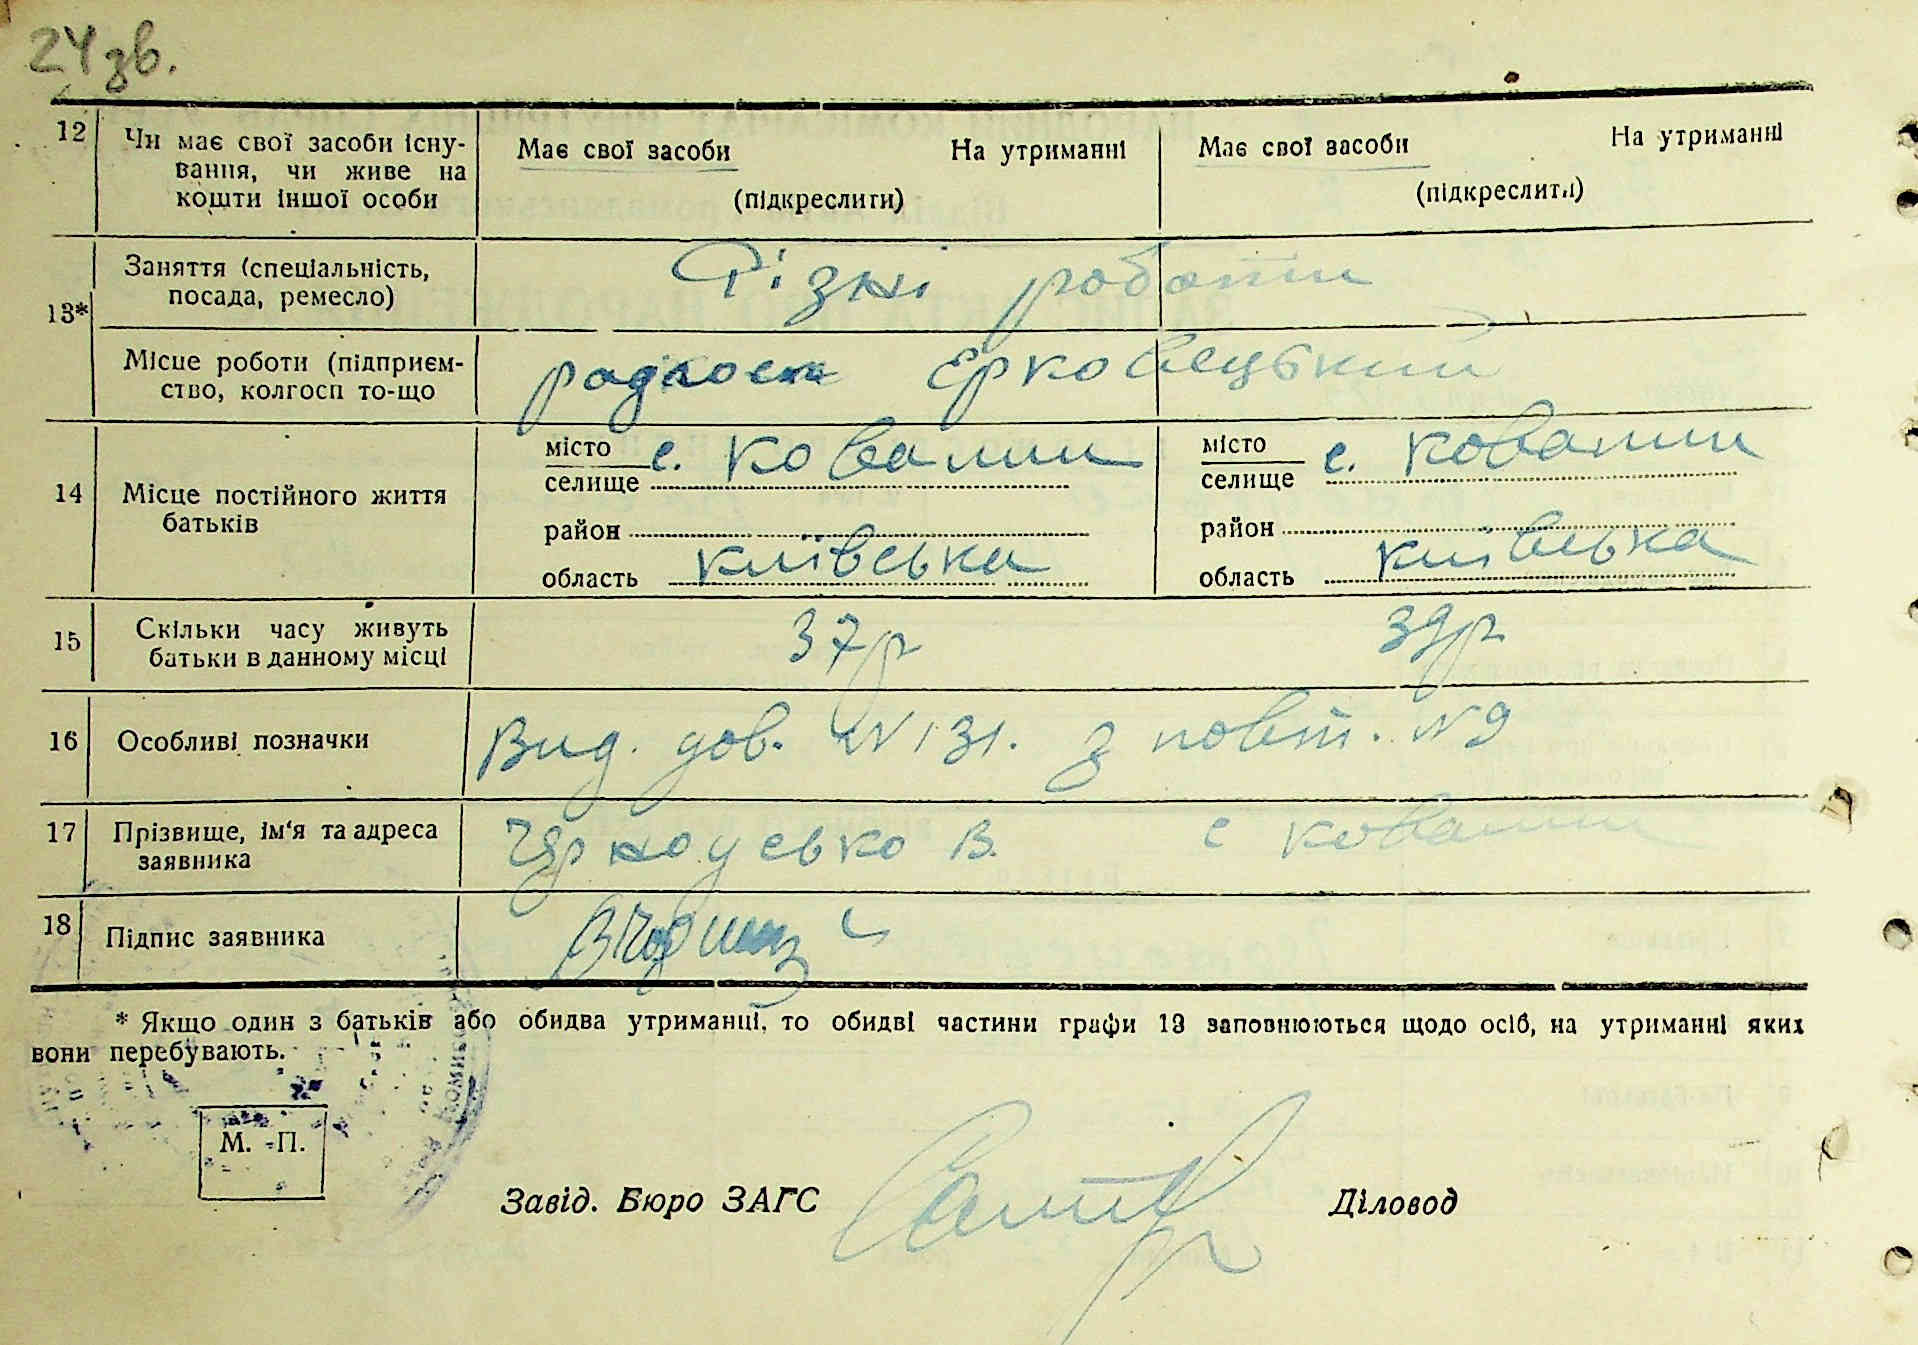 24 зв.
12 Чи має свої засоби існу- Має свої засоби На утриманні Має свої засоби На утриманні
вання, чи живе на
кошти іншої особи (підкреслити) (підкреслити)
Заняття (спеціальність, Різні роботи
посада, ремесло)
13*
Місце роботи (підприєм- Єрковецький
ство, колгосп то-що
місто с. Ковалин місто с. Ковалин
14 Місце постійного життя селище селище
батьків район район
область київська область київська
15 Скільки часу живуть 37 р 39 р
батьки в данному місці
16 Особливі позначки Вид. дов. N 131. з повт. N 9
17 Прізвище, ім'я та адреса В. с Ковалин
заявника
18 Підпис заявника
* Якщо один з батьків або обидва утриманці, то обидві частини графи 13 заповнюються щодо осіб, на утриманні яких
вони перебувають.
М. П.
Завід. Бюро ЗАГС Діловод